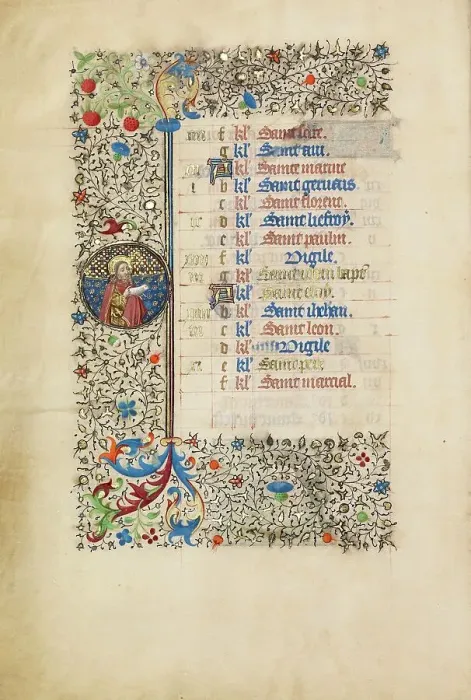 f kl' Saint
g kl' Saint aui.
A kl' Saint marine
i b kl' Saint geruais.
c kl' Saint florent.
d kl' Saint liefroy.
e kl' Saint paulin.
f kl' Vigile.
g kl' Saint bapt
A kl' Saint eloy.
b kl' Saint iehan.
c kl' Saint leon.
d kl' Vigile
e kl' Saint pere.
f kl' Saint marcial.